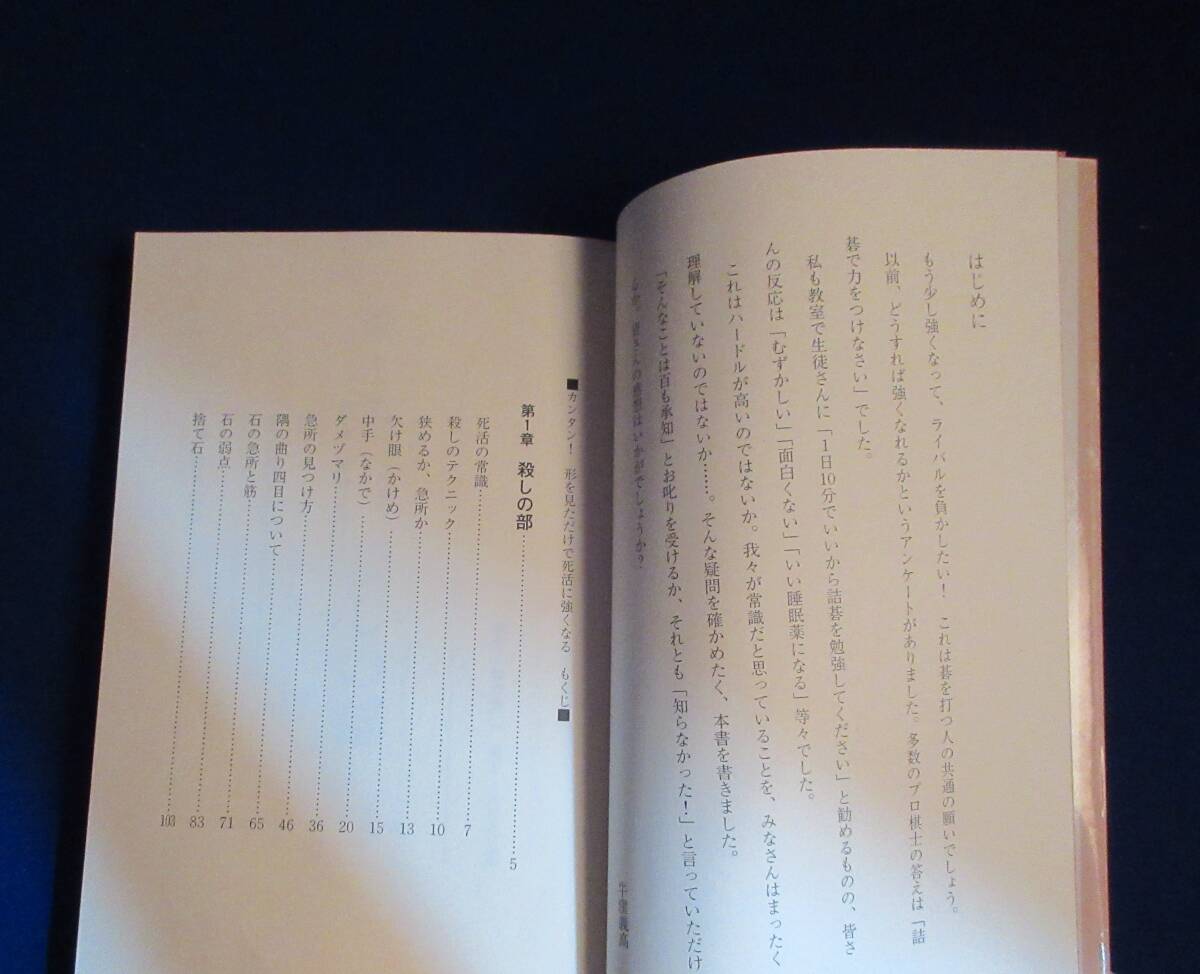 はじめに
もう少し強くなって、ライバルを負かしたい! これは碁を打つ人の共通の願いでしょう。
以前、どうすれば強くなれるかというアンケートがありました。多数のプロ棋士の答えは「詰
碁で力をつけなさい」でした。
私も教室で生徒さんに「1日10分でいいから詰碁を勉強してください」と勧めるものの、皆さ
んの反応は「むずかしい」「面白くない」「いい睡眠薬になる」等々でした。
これはハードルが高いのではないか。我々が常識だと思っていることを、みなさんはまったく
理解していないのではないか……。そんな疑問を確かめたく、本書を書きました。
「そんなことは百も承知」とお叱りを受けるか、それとも「知らなかった!」と言っていただけ
るか。皆さんの感想はいかがでしょうか?
牛窪義高
■カンタン! 形を見ただけで死活に強くなる もくじ■
第1章 殺しの部……5
死活の常識……7
殺しのテクニック……10
狭めるか、急所か……13
欠け眼(かけめ)……15
中手(なかで)……20
ダメヅマリ……36
急所の見つけ方……46
隅の曲り四目について……65
石の急所と筋……71
石の弱点……83
捨て石……103